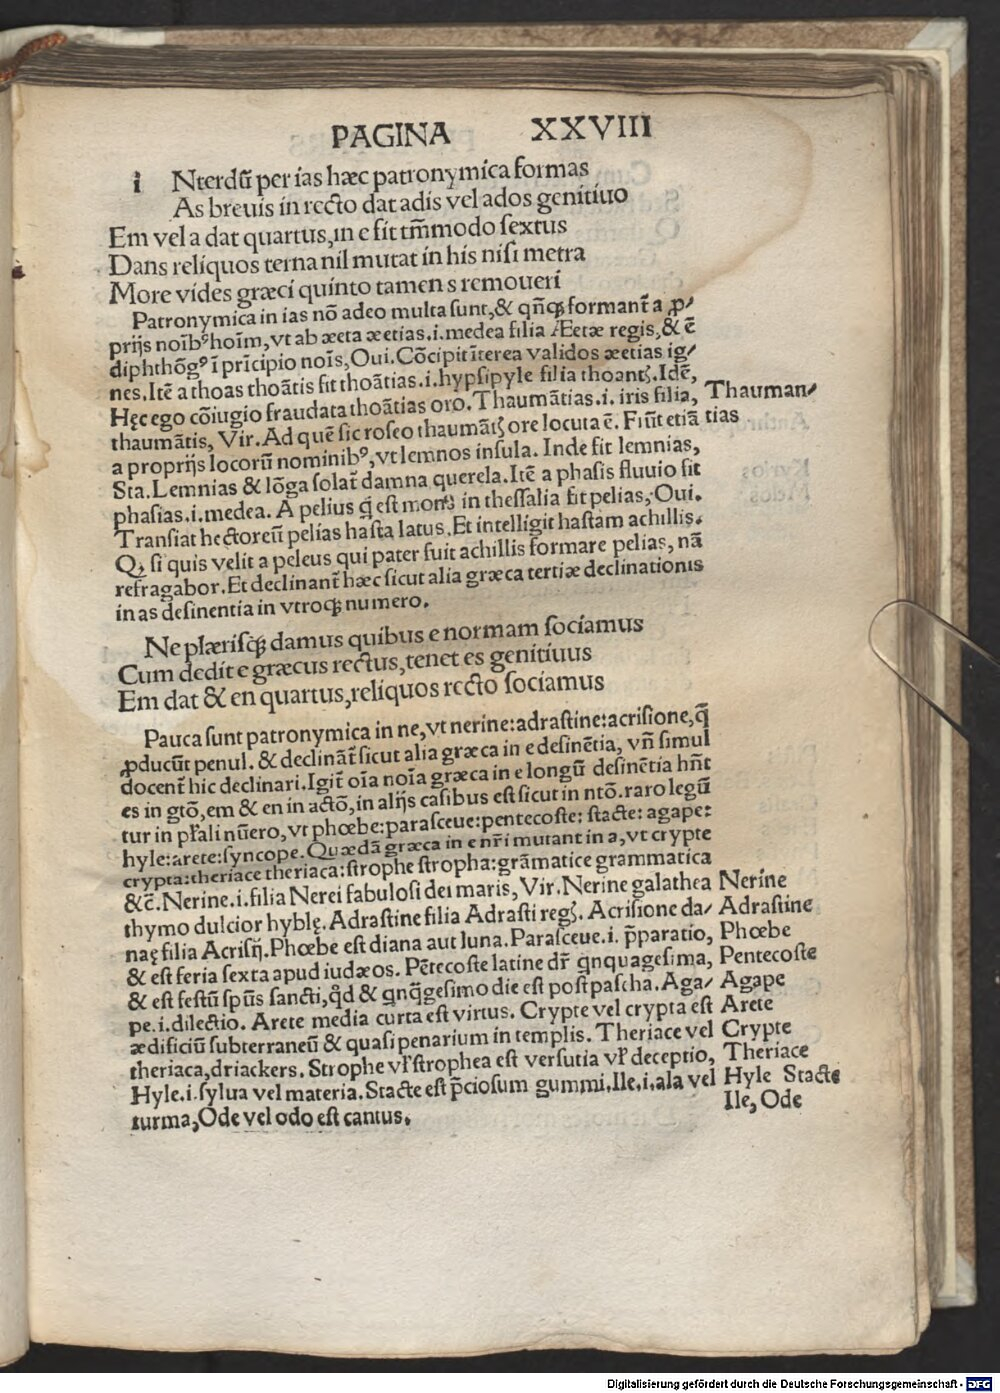 PAGINA XXVIII
i Nterdū per ias hæc patronymica formas
As breuis in recto dat adis vel ados genitiuo
Em vel a dat quartus,in e fit tm̄modo sextus
Dans reliquos terna nil mutat in his nisi metra
More vides græci quinto tamen s remoueri
Patronymica in ias nō adeo multa sunt,& qn̄qꝫ formant̄ a ꝓ/
prijs noībꝰ hoīm,vt ab æeta æetias.i.medea filia Æetæ regis,& ē
diphthōgꝰ ī prīcipio noīs,Oui.Cōcipit īterea validos æetias ig/
nes.Itē a thoas thoātis fit thoātias.i.hypsipyle filia thoantꝭ.Idē,
Hęc ego cōiugio fraudata thoātias oro.Thaumātias.i. iris filia,
Thauman/
thaumātis, Vir.Ad quē sic roseo thaumātꝭ ore locuta ē. Fiūt etiā
tias
a proprijs locorū nominibꝰ,vt lemnos insula. Inde fit lemnias,
Sta.Lemnias & lōga solat̄ damna querela.Itē a phasis fluuio fit
phasias.i.medea. A pelius q̄ est mons in thessalia fit pelias, Oui.
Transiat hectoreū pelias hasta latus.Et intelligit hastam achillis.
Qꝫ si quis velit a peleus qui pater fuit achillis formare pelias, nā
refragabor.Et declinant̄ hæc sicut alia græca tertiæ declinationis
in as desinentia in vtroqꝫ numero.
Ne plærisqꝫ damus quibus e normam sociamus
Cum dedit e græcus rectus,tenet es genitiuus
Em dat & en quartus,reliquos recto sociamus
Pauca sunt patronymica in ne,vt nerine:adrastine:acrisione,q̄
ꝓducūt penul. & declināt̄ sicut alia græca in e desinētia, vn̄ simul
docent̄ hic declinari.Igit̄ oīa noīa græca in e longū desinētia hn̄t
es in gtō,em & en in actō,in alijs casibus est sicut in ntō.raro legū
tur in pl̄ali nūero,vt phœbe:parasceue:pentecoste: stacte: agape:
hyle:arete:syncope.Quædā græca in e nr̄i mutant in a,vt crypte
crypta:theriace theriaca:strophe stropha:grāmatice grammatica
&c̄.Nerine.i.filia Nerei fabulosi dei maris, Vir.Nerine galathea
Nerine
thymo dulcior hyblę. Adrastine filia Adrasti regꝭ. Acrisione da/
Adrastine
naę filia Acrisij.Phœbe est diana aut luna.Parasceue.i. p̄paratio,
Phœbe
& est feria sexta apud iudæos. Pētecoste latine dr̄ qnquagesima,
Pentecoste
& est festū spūs sancti,qd̄ & qnq̄gesimo die est post pascha. Aga/
Agape
pe.i.dilectio. Arete media curta est virtus. Crypte vel crypta est
Arete
ædificiū subterraneū & quasi penarium in templis. Theriace vel
Crypte
theriaca,driackers. Strophe vl̄ strophea est versutia vl̄ deceptio,
Theriace
Hyle.i.sylua vel materia.Stacte est p̄ciosum gummi.Ile.i.ala vel
Hyle Stacte
turma,Ode vel odo est cantus.
Ile, Ode
Digitalisierung gefördert durch die Deutsche Forschungsgemeinschaft - DFG